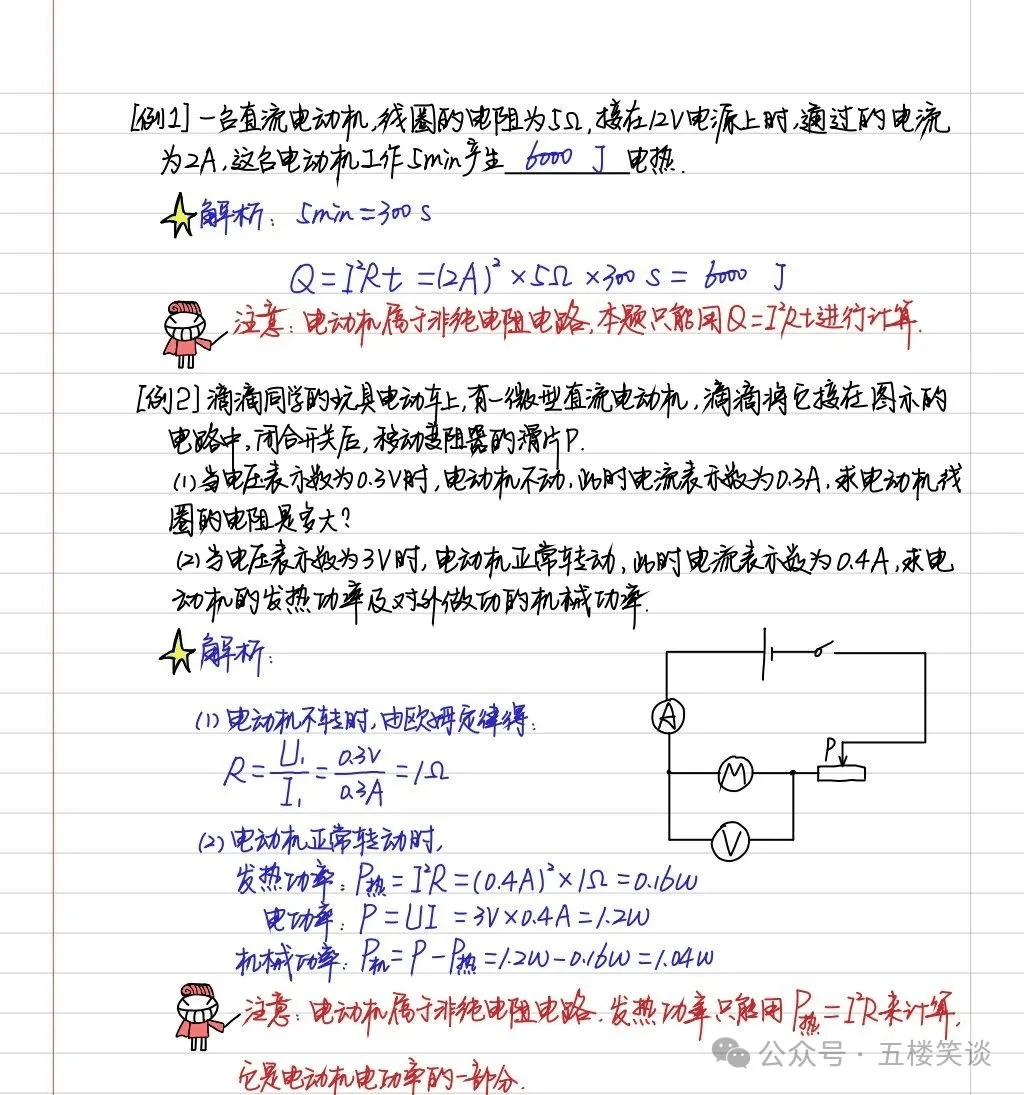 [例1] 一台直流电动机,线圈的电阻为5Ω,接在12V电源上时,通过的电流
为2A,这台电动机工作5min产生 6000 J 电热.
解析: 5min=300 s
Q=I²Rt =(2A)²×5Ω×300 s= 6000 J
注意:电动机属于非纯电阻电路,本题只能用Q=I²Rt进行计算.
[例2] 滴滴同学的玩具电动车上,有一微型直流电动机,滴滴将它接在图示的
电路中,闭合开关后,移动变阻器的滑片P.
(1)当电压表示数为0.3V时,电动机不动,此时电流表示数为0.3A,求电动机线
圈的电阻是多大?
(2)当电压表示数为3V时,电动机正常转动,此时电流表示数为0.4A,求电
动机的发热功率及对外做功的机械功率.
解析:
(1)电动机不转时,由欧姆定律得:
R=U₁/I₁=0.3V/0.3A=1Ω
A
P
M
V
(2)电动机正常转动时,
发热功率:P热=I²R=(0.4A)²×1Ω=0.16W
电功率:P=UI =3V×0.4A=1.2W
机械功率:P机=P-P热=1.2W-0.16W=1.04W
注意:电动机属于非纯电阻电路.发热功率只能用P热=I²R来计算,
它是电动机电功率的一部分.
公众号·五楼笑谈